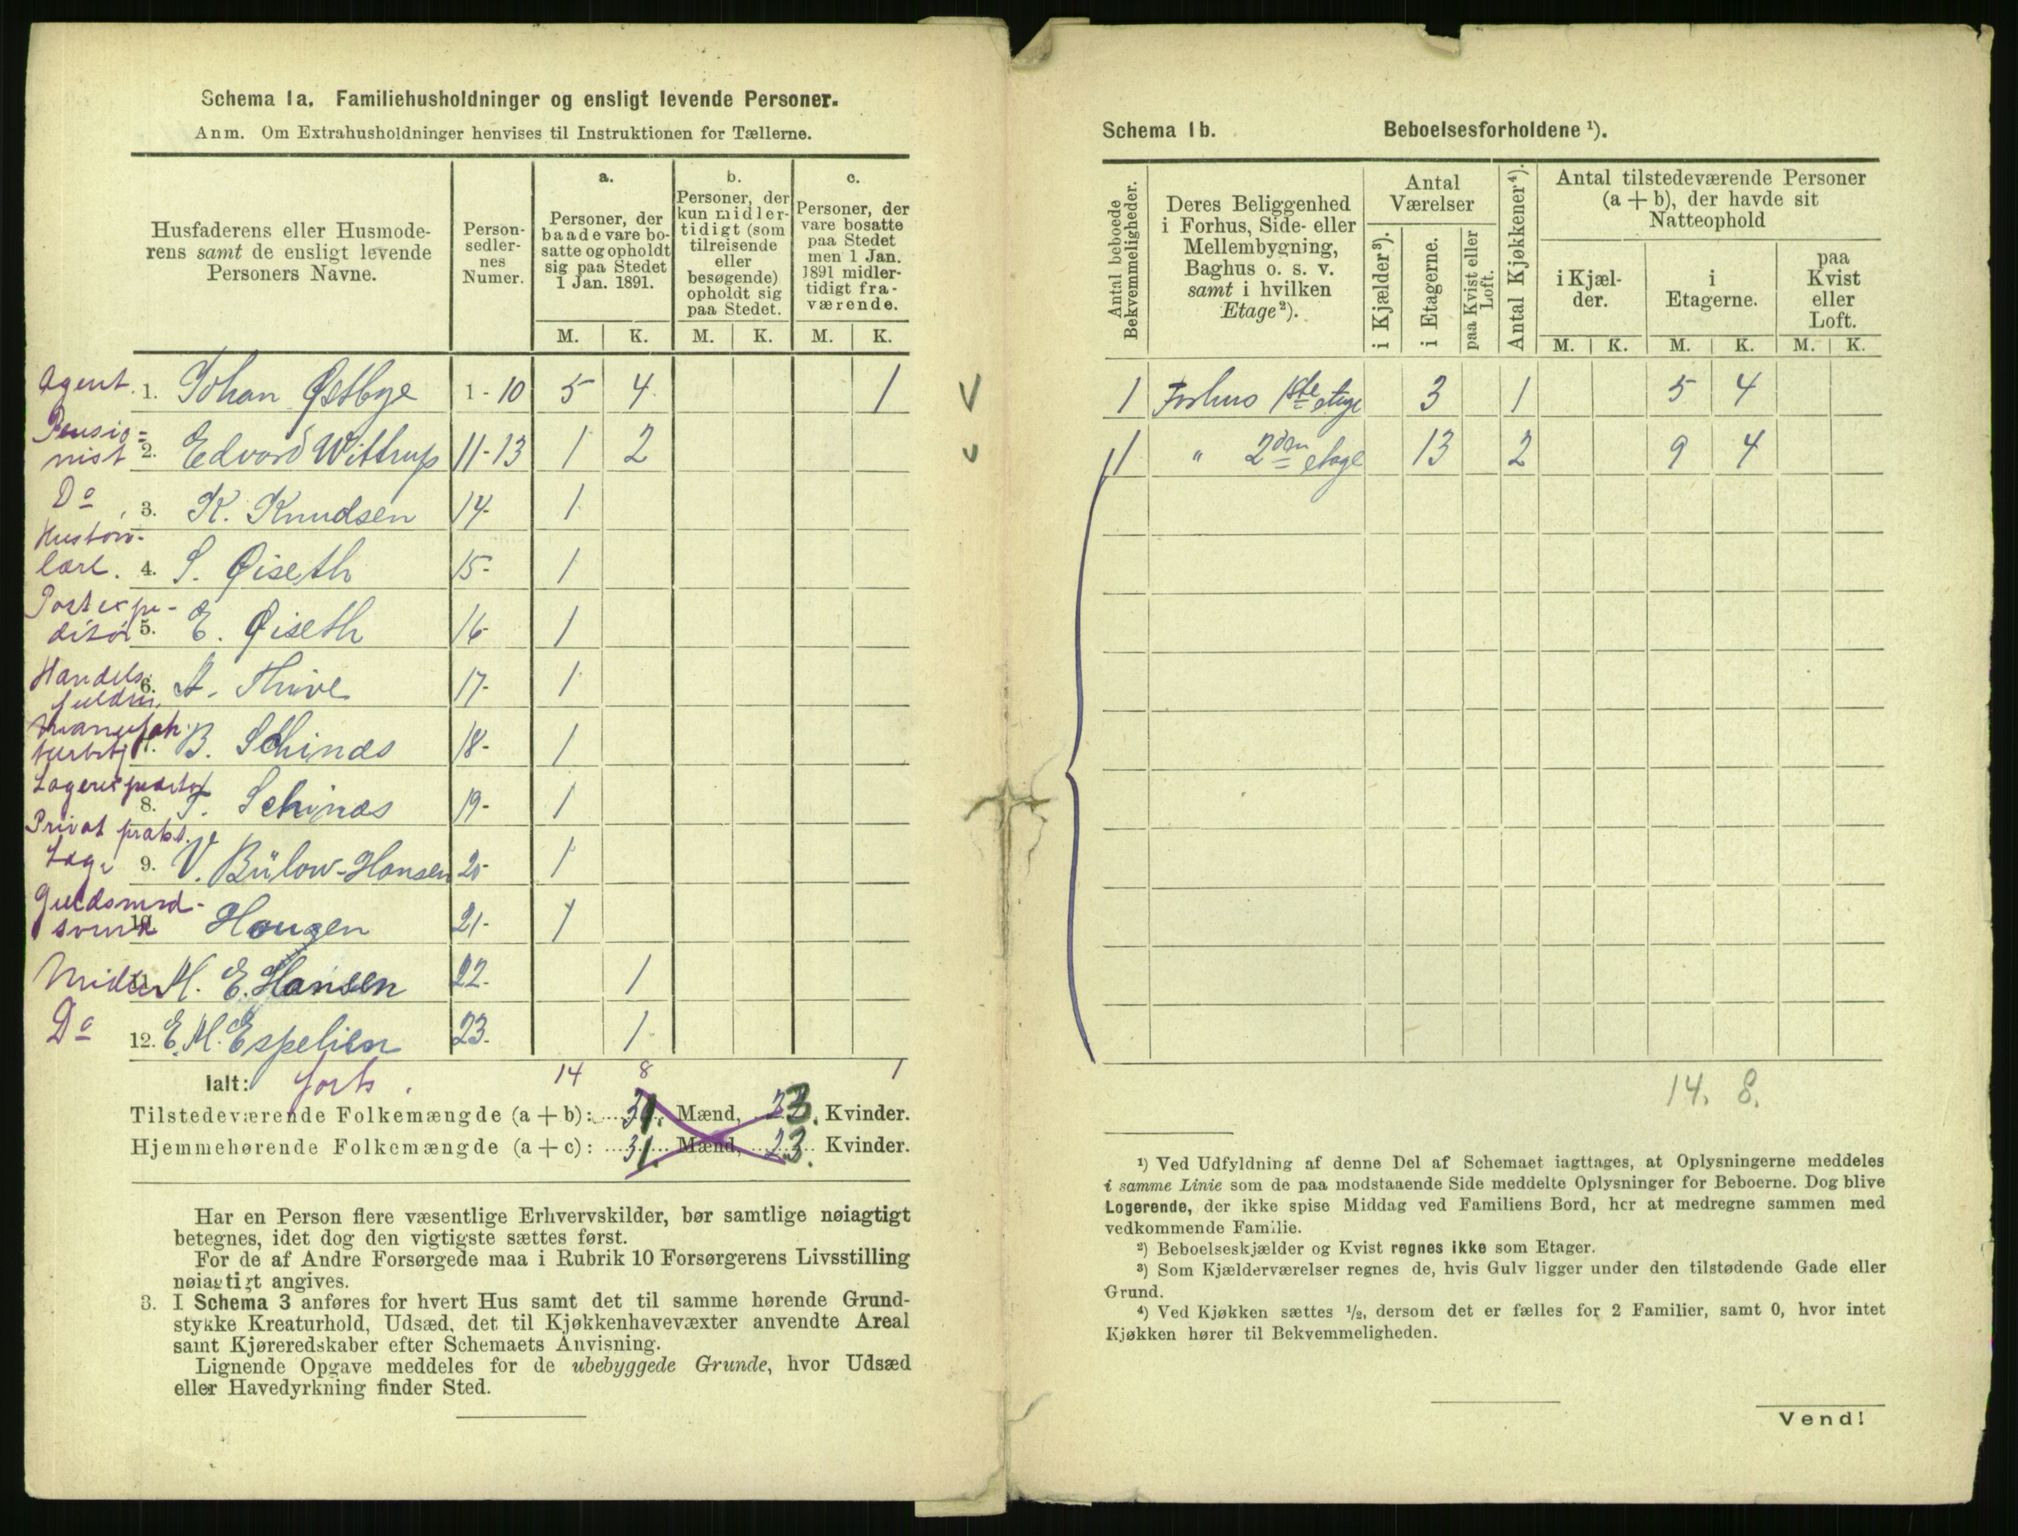 Schema 1a. Familiehusholdninger og ensligt levende Personer.
Anm. Om Extrahusholdninger henvises til Instruktionen for Tællerne.
Husfaderens eller Husmoderens samt de ensligt levende Personers Navne.
Person-sedler-nes Numer.
a.
Personer, der baade vare bosatte og opholdt sig paa Stedet 1 Jan. 1891.
b.
Personer, der kun midlertidigt (som tilreisende eller besøgende) opholdt sig paa Stedet.
c.
Personer, der vare bosatte paa Stedet men 1 Jan. 1891 midlertidigt fraværende.
M. K. M. K. M. K.
Agent. 1. Johan Østbye 1-10 5 4 1
Pensionist 2. Edvard Wittrup 11-13 1 2
Do 3. K. Knudsen 14- 1
lærl. 4. S. Øiseth 15- 1
Postexpeditør 5. E. Øiseth 16- 1
Handels 6. A. Thive 17- 1
7. B. Schinas 18- 1
8. T. Schinas 19- 1
Privat praks. Læge 9. V. Bülow-Hansen 20- 1
Guldsmed-svend 10. Hougen 21- 1
11. M. E. Hansen 22- 1
Do 12. E. M. Espelien 23- 1
Ialt: forts. 14 8 1
Tilstedeværende Folkemængde (a + b): 31. Mænd, 23. Kvinder.
Hjemmehørende Folkemængde (a + c): 31. Mænd, 23. Kvinder.
Har en Person flere væsentlige Erhvervskilder, bør samtlige nøiagtigt
betegnes, idet dog den vigtigste sættes først.
For de af Andre Forsørgede maa i Rubrik 10 Forsørgerens Livsstilling
nøiagtigt angives.
3. I Schema 3 anføres for hvert Hus samt det til samme hørende Grund-
stykke Kreaturhold, Udsæd, det til Kjøkkenhavevæxter anvendte Areal
samt Kjøreredskaber efter Schemaets Anvisning.
Lignende Opgave meddeles for de ubebyggede Grunde, hvor Udsæd
eller Havedyrkning finder Sted.
Schema 1b. Beboelsesforholdene ¹).
Antal beboede Bekvemmeligheder.
Deres Beliggenhed i Forhus, Side- eller Mellembygning, Baghus o. s. v. samt i hvilken Etage ²).
Antal Værelser
i Kjælder ³).
i Etagerne.
paa Kvist eller Loft.
Antal Kjøkkener ⁴).
Antal tilstedeværende Personer (a + b), der havde sit Natteophold
i Kjælder.
i Etagerne.
paa Kvist eller Loft.
M. K. M. K. M. K.
1 Forhus 1ste etage 3 1 5 4
1 " 2den etage 13 2 9 4
14. 8.
¹) Ved Udfyldning af denne Del af Schemaet iagttages, at Oplysningerne meddeles
i samme Linie som de paa modstaaende Side meddelte Oplysninger for Beboerne. Dog blive
Logerende, der ikke spise Middag ved Familiens Bord, her at medregne sammen med
vedkommende Familie.
²) Beboelseskjælder og Kvist regnes ikke som Etager.
³) Som Kjælderværelser regnes de, hvis Gulv ligger under den tilstødende Gade eller
Grund.
⁴) Ved Kjøkken sættes ½, dersom det er fælles for 2 Familier, samt 0, hvor intet
Kjøkken hører til Bekvemmeligheden.
Vend!